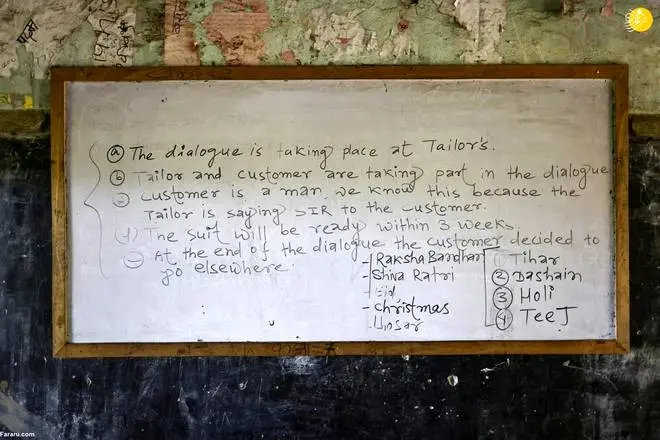 ⓐ The dialogue is taking place at Tailor's.
ⓑ Tailor and customer are taking part in the dialogue
customer is a man. we know this because the
Tailor is saying SIR to the customer.
The suit will be ready within 3 weeks.
At the end of the dialogue the customer decided to
go elsewhere.
- Raksha Bandhan
- Shiva Ratri
- Eid
- Christmas
Lhosar
① Tihar
② Dashain
③ Holi
④ TeeJ
Fararu.com